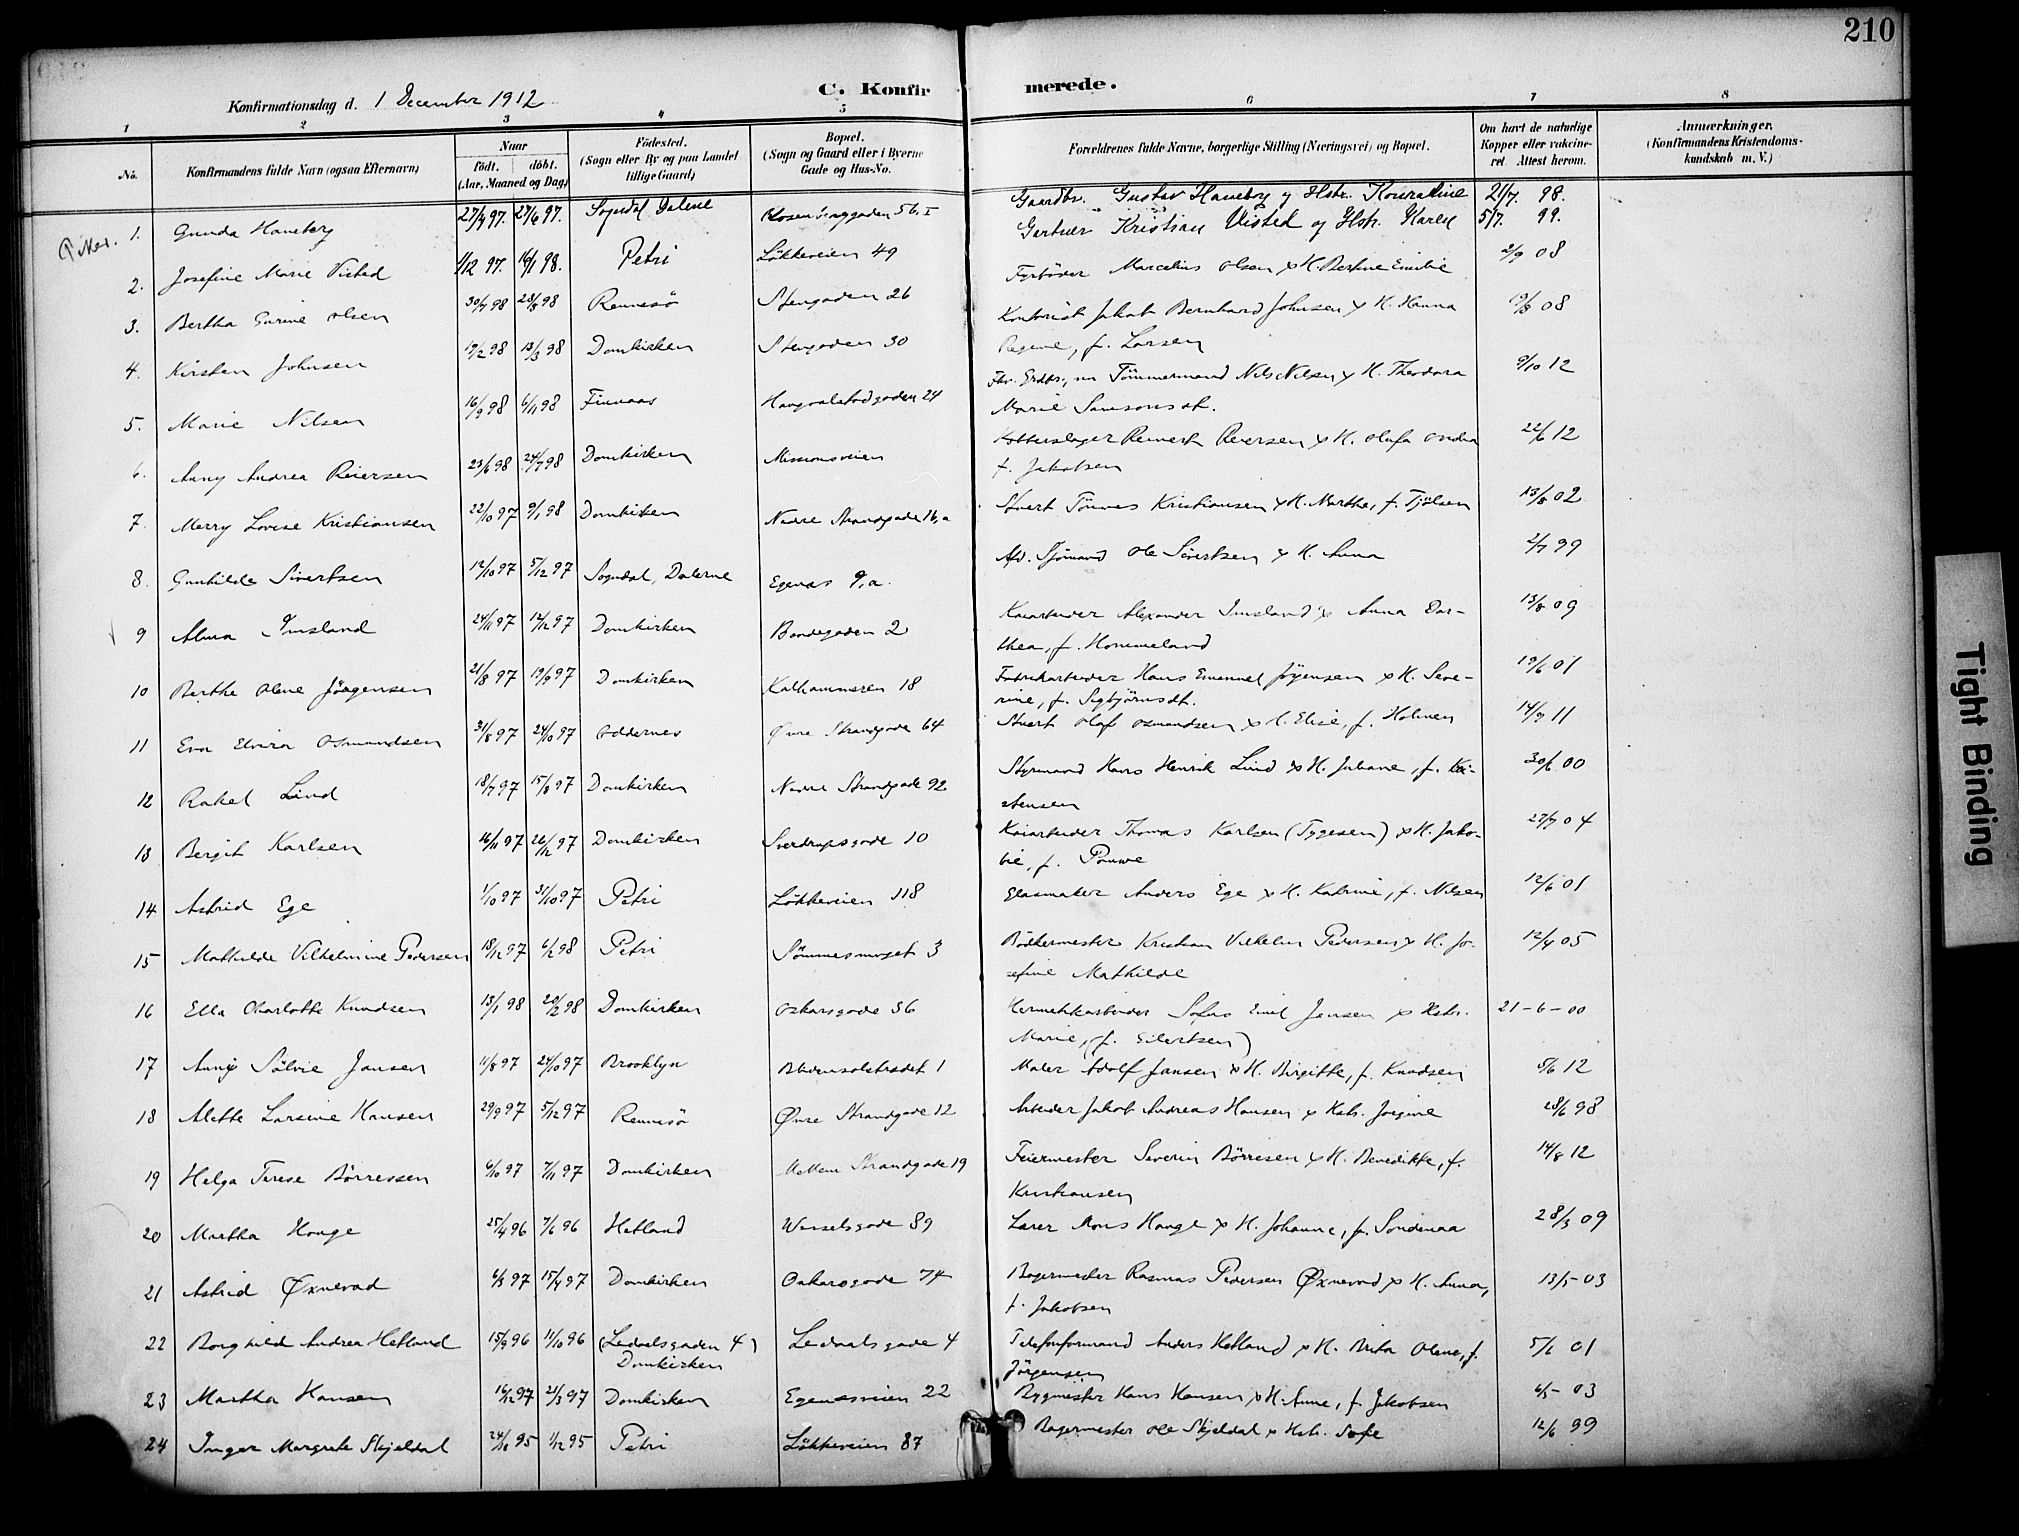 210
C. Konfirmerede.
Konfirmationsdag d. 1 December 1912
1 2 3 4 5 6 7 8
No. Konfirmandens fulde Navn (ogsaa Efternavn) Naar födt. döbt. (Aar, Maaned og Dag) Födested. (Sogn eller By og paa Landet tillige Gaard) Bopæl. (Sogn og Gaard eller i Byerne Gade og Hus-No. Forældrenes fulde Navne, borgerlige Stilling (Næringsvei) og Bopæl. Om havt de naturlige Kopper eller vakcineret. Attest herom. Anmærkninger. (Konfirmandens Kristendomskundskab m. V.)
Piker. 1. Gunda Haneberg 27/4 97. 27/6 97. Sogndal Dalene Rosenberggaden 56, I Gaardbr. Gustav Haneberg og Hstr. Konradine 21/7. 98.
2. Josefine Marie Visted 1/12 97. 16/1 98. Petri Løkkeveien 49 Gartner Kristian Visted og Hstr. Karen 5/7. 99.
3. Bertha Gurine Olsen 30/7 98 28/8 98 Rennesö Stengaden 26 Fyrbøder Marcelius Olsen & H. Bertine Emilie 2/9 08
4. Kirsten Johnsen 19/2 98 13/3 98 Domkirken Stengaden 30 Kontorist Jakob Bernhard Johnsen & H. Hanna
Regine, f. Larsen 08
5. Marie Nilsen 16/9 98 6/11 98 Finnaas Haugvaldstadgaden 24 Tömmermand Nils Nilsen & H. Theodora
Marie Samsonsdt. 9/10 12
6. Anny Andrea Reiersen 23/6 98 24/7 98 Domkirken Missionsveien Kobberslager Reinert Reiersen & H. Olufa Andrea
f. Jakobsen 22/6 12
7. Merry Lovise Kristiansen 22/10 97 9/1 98 Domkirken Nedre Strandgade 16, a Stuert Tönnes Kristiansen & H. Marthe, f. Tjölsen 13/8 02
8. Gunhilde Sivertsen 12/10 97 5/12 97 Sogndal, Dalerne Egenæs 9, a. Afd. Sjömand Ole Sivertsen & H. Anna 2/7 99
9 Alma Imsland 24/11 97 19/12 97 Domkirken Bondegaden 2 Kaiarbeider Alexander Imsland & Anna Dorthea,
f. Hommeland 13/8 09
10 Berthe Olene Jörgensen 21/8 97 19/9 97 Domkirken Kalhammeren 18 Fabrikarbeider Hans Emanuel Jörgensen & H. Severine,
f. Sigbjörnsdt. 19/6 01
11 Eva Elvira Osmundsen 31/8 97 24/10 97 Oddernes Øvre Strandgade 64 Stuert Olaf Osmundsen & H. Elise, f. Holmen 14/9 11
12 Rakel Lind 18/7 97 15/8 97 Domkirken Nedre Strandgade 92 Styrmand Hans Henrik Lind & H. Juliane, f. Kristensen 30/6 00
13 Bergit Karlsen 16/11 97 26/12 97 Domkirken Sverdrupsgade 10 Kaiarbeider Thomas Karlsen (Tygesen) & H. Jakobie,
f. 27/7 04
14 Astrid Ege 1/10 97 31/10 97 Petri Løkkeveien 118 Glasmaker Anders Ege & H. Katrine, f. Nilsen 12/6 01
15 Mathilde Vilhelmine Pedersen 18/12 97 6/2 98 Petri Sömmesmuget 3 Bödkermester Kristian Vilhelm Pedersen & H. Josefine
Mathilde 12/4 05
16 Ella Charlotte Knudsen 13/1 98 20/2 98 Domkirken Oskarsgade 56 Hermetikkarbeider Sofus Emil Jensen & Hstr.
Marie, (f. Eilertsen) 21-6-00
17 Anny Sölvie Jansen 11/8 97 24/10 97 Brooklyn Blidensolstrædet 1 Maler Adolf Jansen & H. Birgitte, f. Knudsen 5/6 12
18 Mette Larsine Hansen 29/9 97 5/12 97 Rennesö Øvre Strandgade 12 Arbeider Jakob Andreas Hansen & Hstr. Jorgine 28/6 98
19 Helga Terese Börressen 6/10 97 7/11 97 Domkirken Mellem Strandgade 19 Feiermester Severin Börresen & H. Benedikte, f.
Kristiansen 14/8 12
20 Martha Hauge 25/4 96 7/6 96 Hetland Wesselsgade 89 Lærer Mons Hauge & H. Johanne, f. Söndenaa 28/3 09
21 Astrid Øxnevad 6/3 97 15/4 97 Domkirken Oskarsgade 74 Bagermester Rasmus Pedersen Øxnevad & H. Anna,
f. Jakobsen 13/5 - 03
22 Borghild Andrea Hetland 15/9 96 11/10 96 (Ledaalsgaden 4) Domkirken Ledaalsgade 4 Telefonformand Anders Hetland & H. Berta Olene, f.
Jörgensen 5/6 01
23 Martha Hansen 16/12 97 21/3 97 Domkirken Egenæsveien 22 Bygmester Hans Hansen & H. Anne, f. Jakobsen 6/5 - 03
24 Inger Margrete Skjeldal 24/10 95 1/12 95 Petri Løkkeveien 87 Bagermester Ole Skjeldal & Hstr. Sofie 12/6 99
Tight Binding